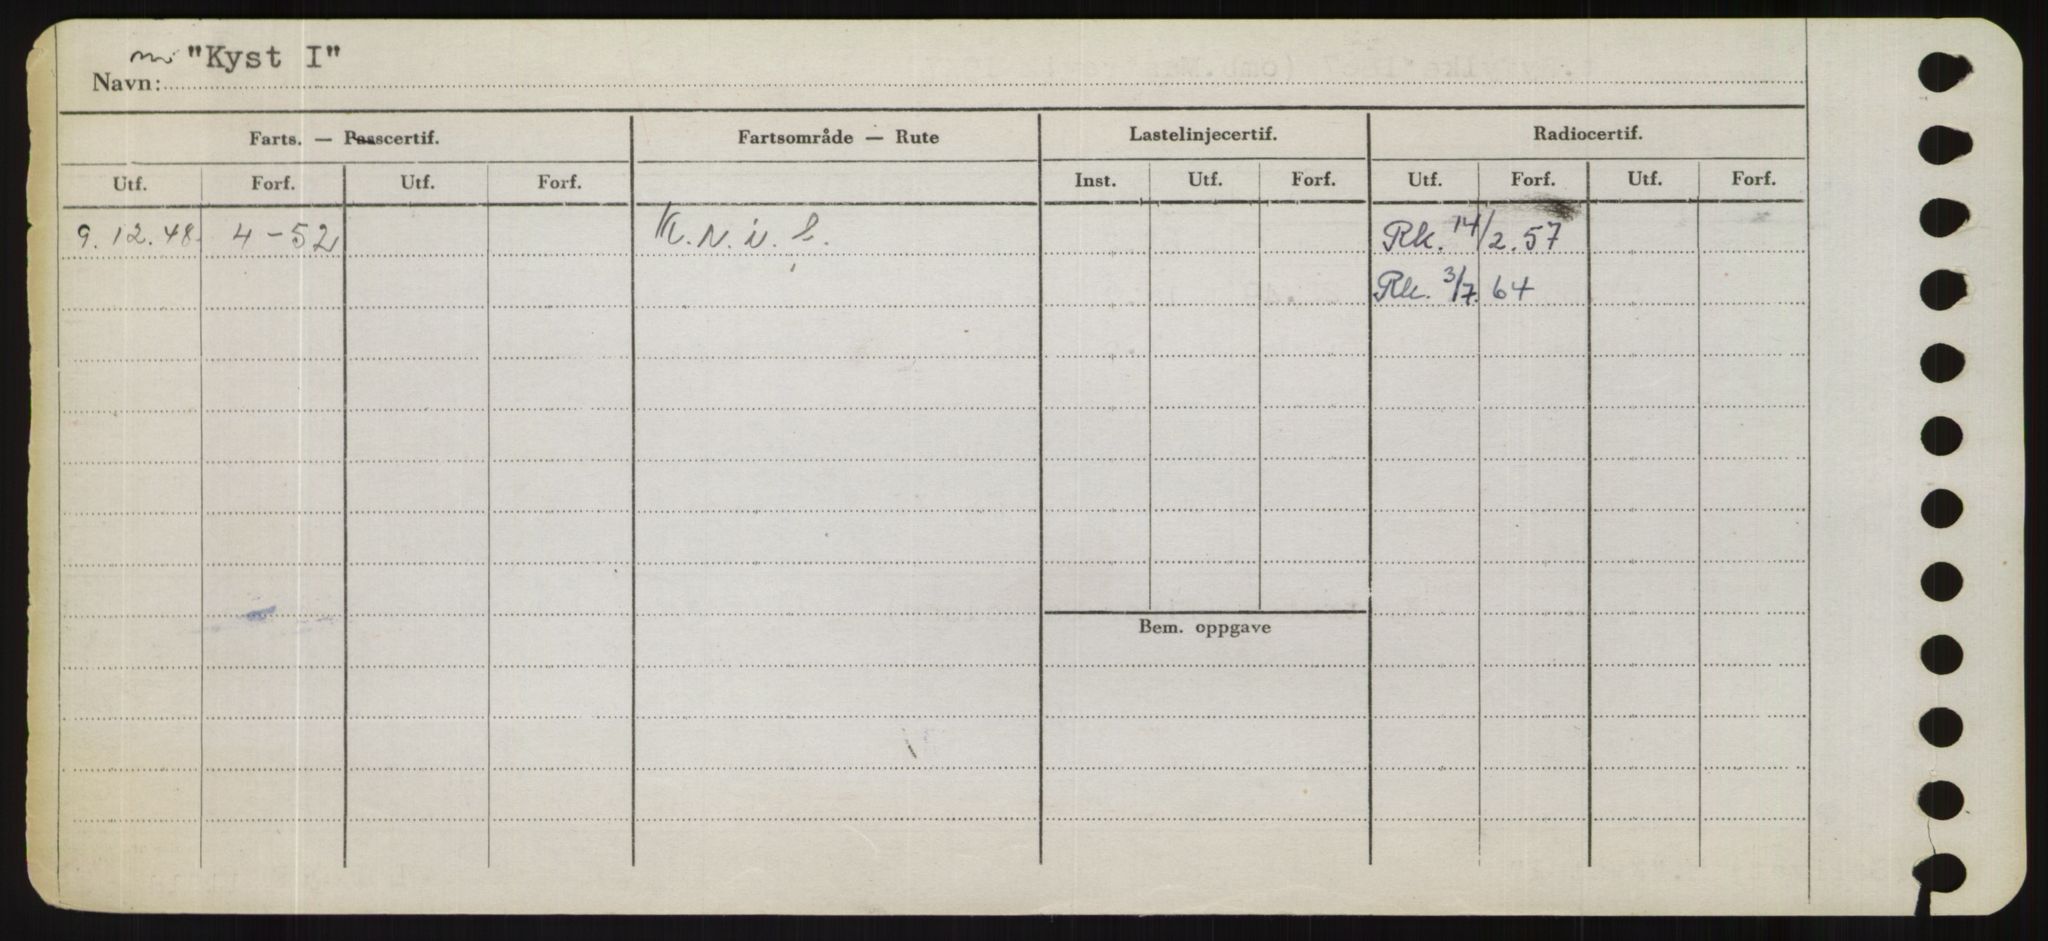 "Kyst I"
Navn:
Farts. — Passcertif. Fartsområde — Rute Lastelinjecertif. Radiocertif.
Utf. Forf. Utf. Forf. Inst. Utf. Forf. Utf. Forf. Utf. Forf.
9.12.48. 4-52 Rk. 14/2.57
Rk. 3/7. 64
Bem. oppgave